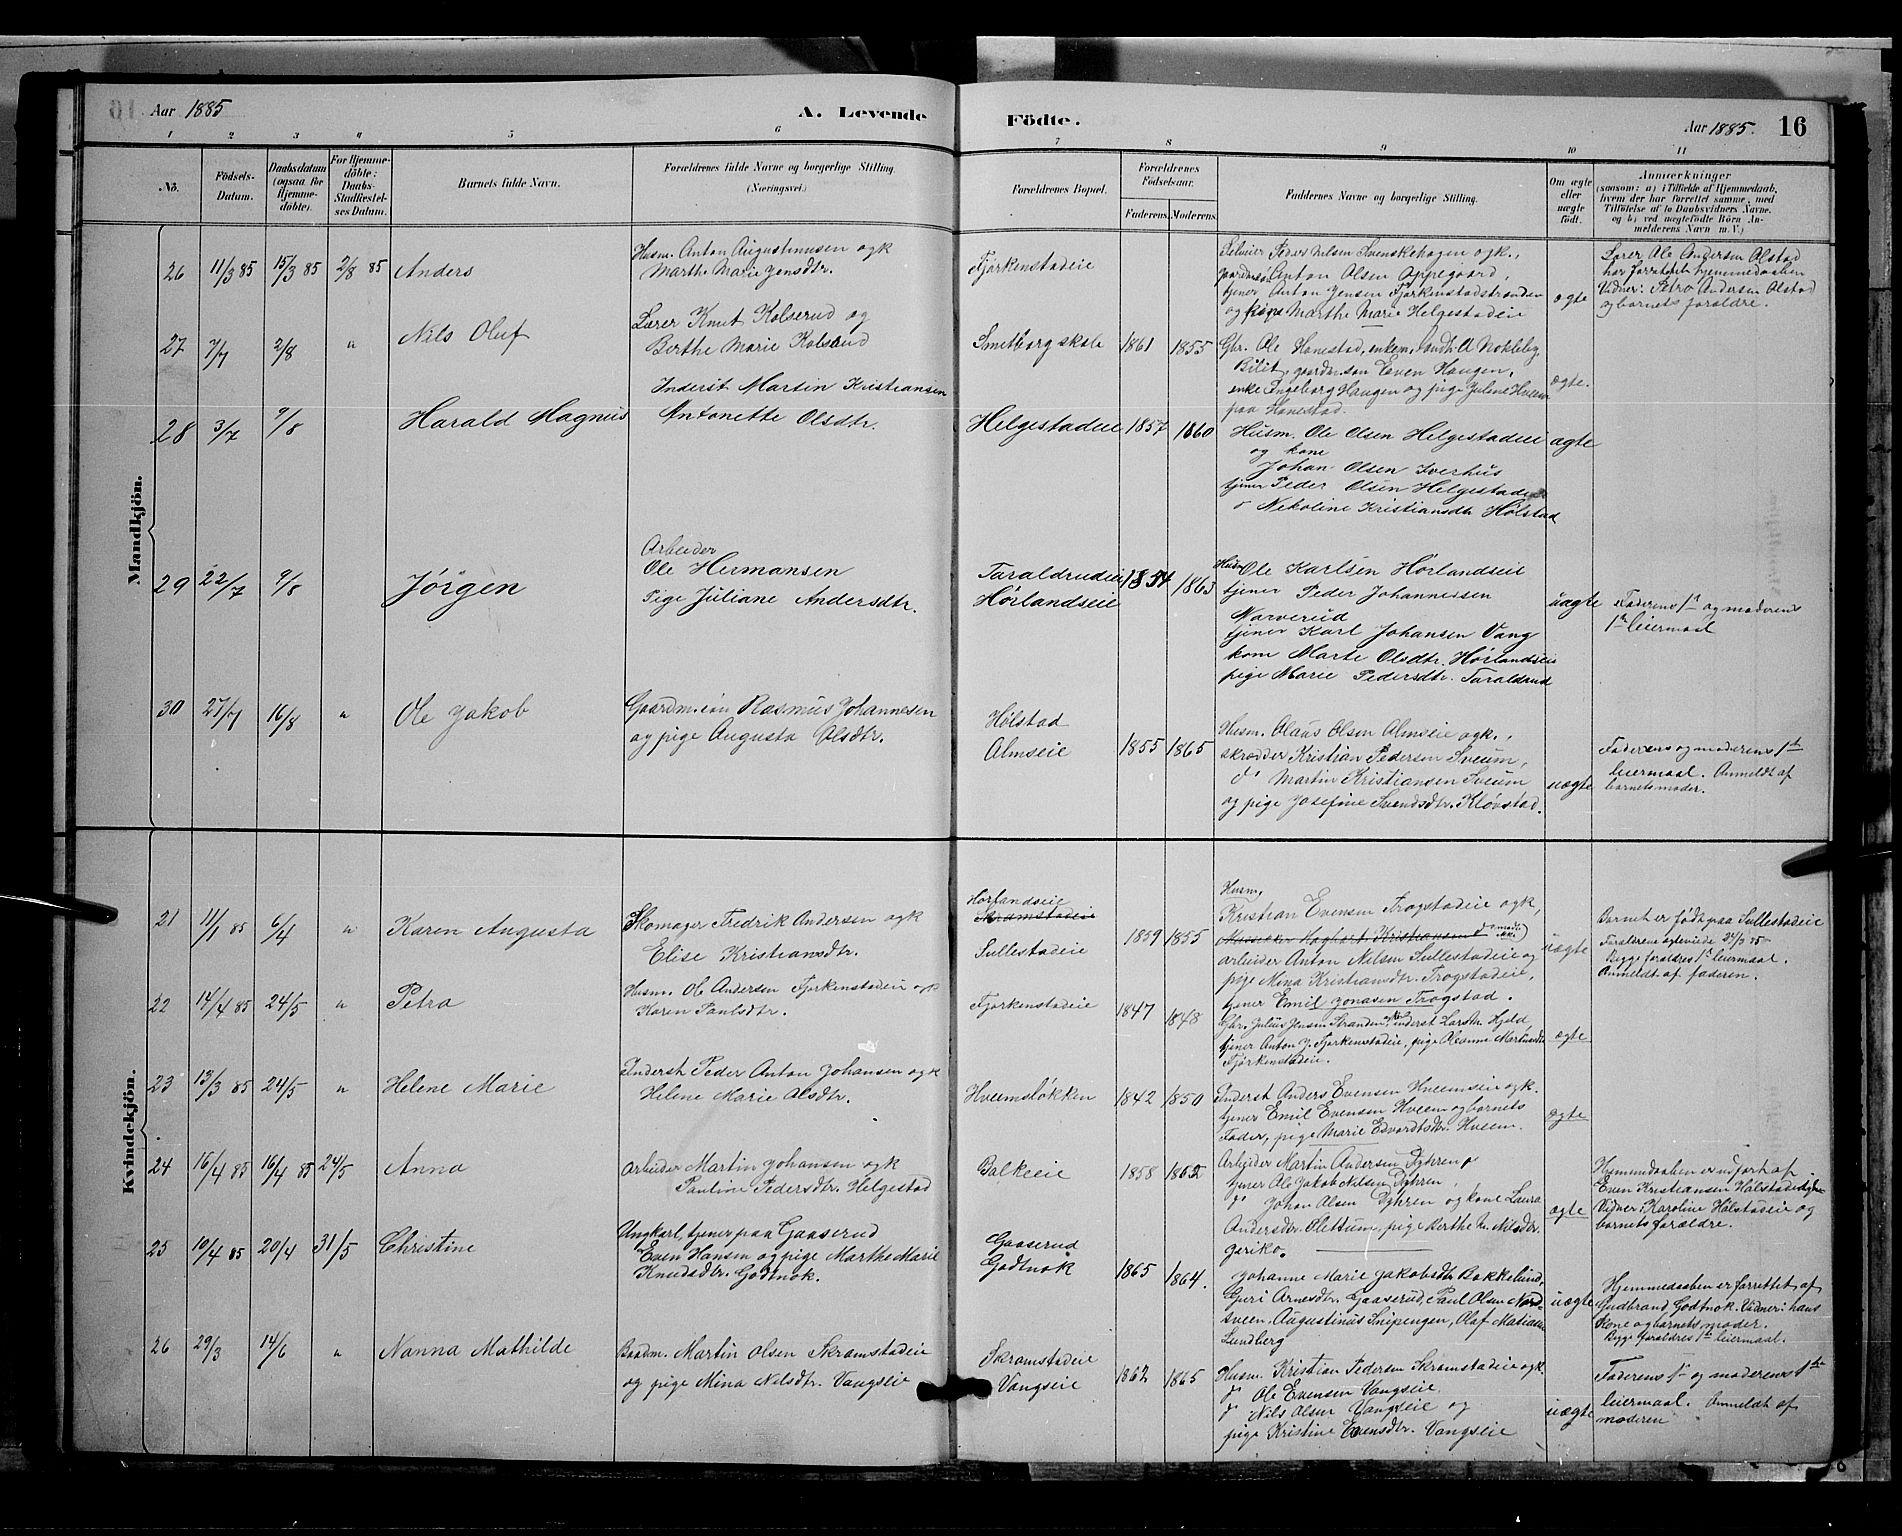 Aar 1885 A. Levende Födte. Aar 1885. 16
1 2 3 4 5 6 7 8 9 10 11
No.
Födsels-
Datum.
Daabsdatum
(ogsaa for
Hjemme-
döbte).
For Hjemme-
döbte:
Daabs-
Stadfæstel-
ses Datum.
Barnets fulde Navn.
Forældrenes fulde Navne og borgerlige Stilling
(Næringsvei.)
Forældrenes Bopæl.
Forældrenes
Födselsaar.
Faderens. Moderens.
Faddernes Navne og borgerlige Stilling.
Om ægte
eller
uægte
födt.
Anmærkninger
(saasom: a) i Tilfælde af Hjemmedaab,
hvem der har forrettet samme, med
Tilföielse af to Daabsvidners Navne.
og b) ved uægtefödte Börn An-
melderens Navn m. V.)
Mandkjön.
26 11/3 85 15/3 85 2/8 85 Anders
Husm. Anton Augustinusen ogk
Marthe Marie Jensdtr.
Fjørkenstadeie
Selveier Peder Nilsen Svenskehagen ogk.,
gaardmsøn Anton Olsen Oppegaard,
tjener Anton Jensen Fjørkenstadstranden
og Marthe Marie Helgestadeie
ægte
Lærer Ole Andersen Alstad
har forrettet hjemmedaaben
Vidner: Petra Andersen Alstad
og barnets forældre.
27 7/7 2/8 " Nils Oluf
Lærer Knut Kolserud og
Berthe Marie Kolserud
Smeborg skole 1861 1855
Gbr. Ole Hanestad, enkem. Nøkleby
Bilit, gaardm.søn Even Haugen,
enke Ingeborg Haugen og pige Juline Hveem
paa Hanestad.
ægte.
28 3/7 9/8 Harald Magnus
Inderst Martin Kristiansen
Antonette Olsdtr.
Helgestadeie 1857 1860
Husm. Ole Olsen Helgestadeie
og kone
Johan Olsen Iverhus
tjener Peder Olsen Helgestadeie
o Nikoline Kristiansdtr Hølstad
ægte
29 22/7 9/8 Jørgen
Arbeider
Ole Hermansen
Pige Juliane Andersdtr.
Taraldrudeie
Hørlandseie
1854 1863
Husm Ole Karlsen Hørlandseie
tjener Peder Johannessen
Narverud
tjener Karl Johansen Vang
kone Marte Olsdtr. Hørlandseie
pige Marie Pedersdtr. Taraldrud
uægte
Faderens 1st og moderens
1st leiermaal
30 27/7 16/8 " Ole Jakob
Gaardm.søn Rasmus Johannesen
og pige Augusta Olsdtr.
Hølstad
Almseie
1855 1865
Husm. Olaus Olsen Almseie ogk.,
skrædder Kristian Pedersen Sveum,
do Martin Kristiansen Sveum
og pige Josefine Svendsdtr. Kløvstad.
uægte
Faderens og moderens 1ste
leiermaal. Anmeldt af
barnets moder.
Kvindekjön.
21 11/1 85 6/4 " Karen Augusta
Skomager Fredrik Andersen ogk
Elise Kristiansdtr.
Hørlandseie
Skramstadeie
Sullestadeie
1859 1855
Husm.
Kristian Evensen Trogstadeie ogk,
arbeider Anton Nilsen Sullestadeie og
pige Mina Kristiansdtr. Trogstadeie,
tjener Emil Jonasen Trogstad.
uægte
Barnet er født paa Sullestadeie
Forældrene ægteviede
Begge forældres 1st leiermaal.
Anmeldt af faderen.
22 14/4 85 24/5 " Petra
Husm. Ole Andersen Fjørkenstadeie ogk
Karen Paulsdtr.
Fjørkenstadeie 1847 1848
Gbr. Julius Jensen Stranden ogk., inderst Larstr. Hjeld,
tjener Anton J. Fjørkenstadeie, pige Oleanne Martinsdtr
Fjørkenstadeie.
ægte
23 13/3 85 24/5 " Helene Marie
Inderst Peder Anton Johansen ogk
Helene Marie Olsdtr.
Hveemsløkken 1842 1850
Inderst Anders Evensen Hveemseie ogk.
tjener Emil Evensen Hveem og barnets
Fader, pige Marie Edvardsdtr. Hveem.
ægte
24 16/4 85 16/4 85 24/5 Anna
Arbeider Martin Johansen ogk
Pauline Pedersdtr. Helgestad
Balkeeie 1858 1862
Arbeider Martin Andersen Dyhren,
tjener Ole Jakob Nilsen Dyhren,
do Johan Olsen Dyhren og kone Laura
Andersdtr. Sletsum, pige Berthe M. Nilsdtr.
Jeriko.
ægte
Hjemmedaaben er udført af
Even Kristiansen Hølstadeie
Vidner: Karoline Hølstadeie og
barnets forældre.
25 10/4 85 20/4 31/5 Christine
Ungkarl, tjener paa Gaaserud
Even Hansen og pige Marthe Marie
Knudsdtr. Godtnok.
Gaaserud
Godtnok
1865 1864.
Johanne Marie Jakobsdtr Bakkelund,
Guri Arnesdtr. Gaaserud, Paul Olsen Nord-
sveen, Augustinus Snipengen, Olaf Matiasen
Lundberg
uægte
Hjemmedaaben er forrettet af
Gudbrand Godtnok. Vidner: hans
kone og barnets moder.
Begge forældres 1ste leiermaal.
26 29/3 14/6 " Nanna Mathilde
Baadm. Martin Olsen Skramstadeie
og pige Mina Nilsdtr. Vangseie
Skramstadeie
Vangseie
1862 1865
Husm. Kristian Pedersen Skramstadeie ogk.
do Ole Evensen Vangseie
do Nils Olsen Vangseie og
pige Kristine Evensdtr. Vangseie
uægte
Faderens 1ste og moderens 1ste
leiermaal. Anmeldt af
moderen